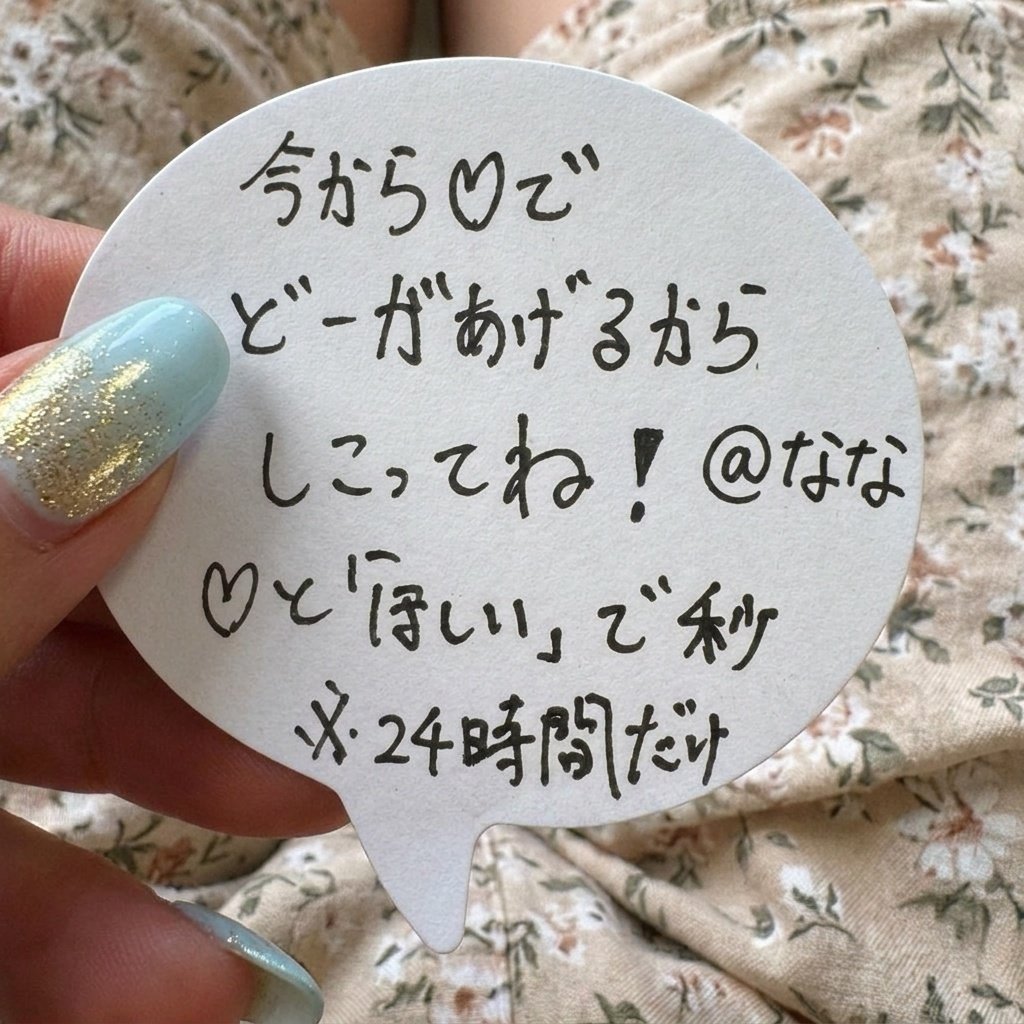 今から♡で
どーがあげるから
しこってね！@なな
♡と「ほしい」で秒
※24時間だけ